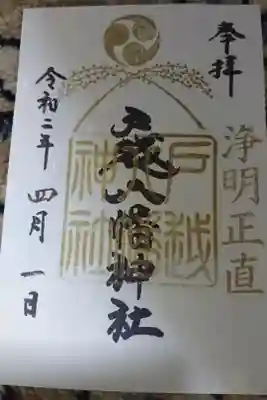 奉拝
浄明正直
戸越八幡神社
戸越八幡神社
令和二年 四月 一日